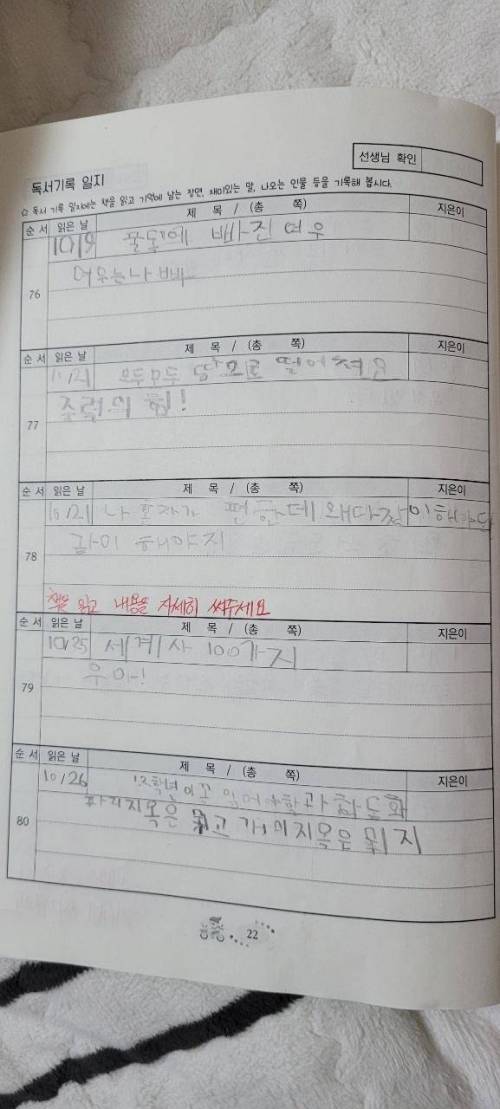 선생님 확인
독서기록 일지
☆ 독서 기록 일지에는 책을 읽고 기억에 남는 장면, 재미있는 말, 나오는 인물 등을 기록해 봅시다.
순 서 읽은 날 제 목 / (총 쪽) 지은이
꿀통에 빠진 여우
76 여우는 나빠
순 서 읽은 날 제 목 / (총 쪽) 지은이
10/21 모두 모두 땅으로 떨어져요
77 중력의 힘!
순 서 읽은 날 제 목 / (총 쪽) 지은이
10/21 나 혼자가 편한데 왜 다 같이 해야
78 같이 해야지
책을 읽고 내용을 자세히 써주세요
순 서 읽은 날 제 목 / (총 쪽) 지은이
10/25 세계사 100가지
79 우아!
순 서 읽은 날 제 목 / (총 쪽) 지은이
10/26 읽어야 할 과학동화
80 지옥은 뭐고 개미지옥은 뭐지
22